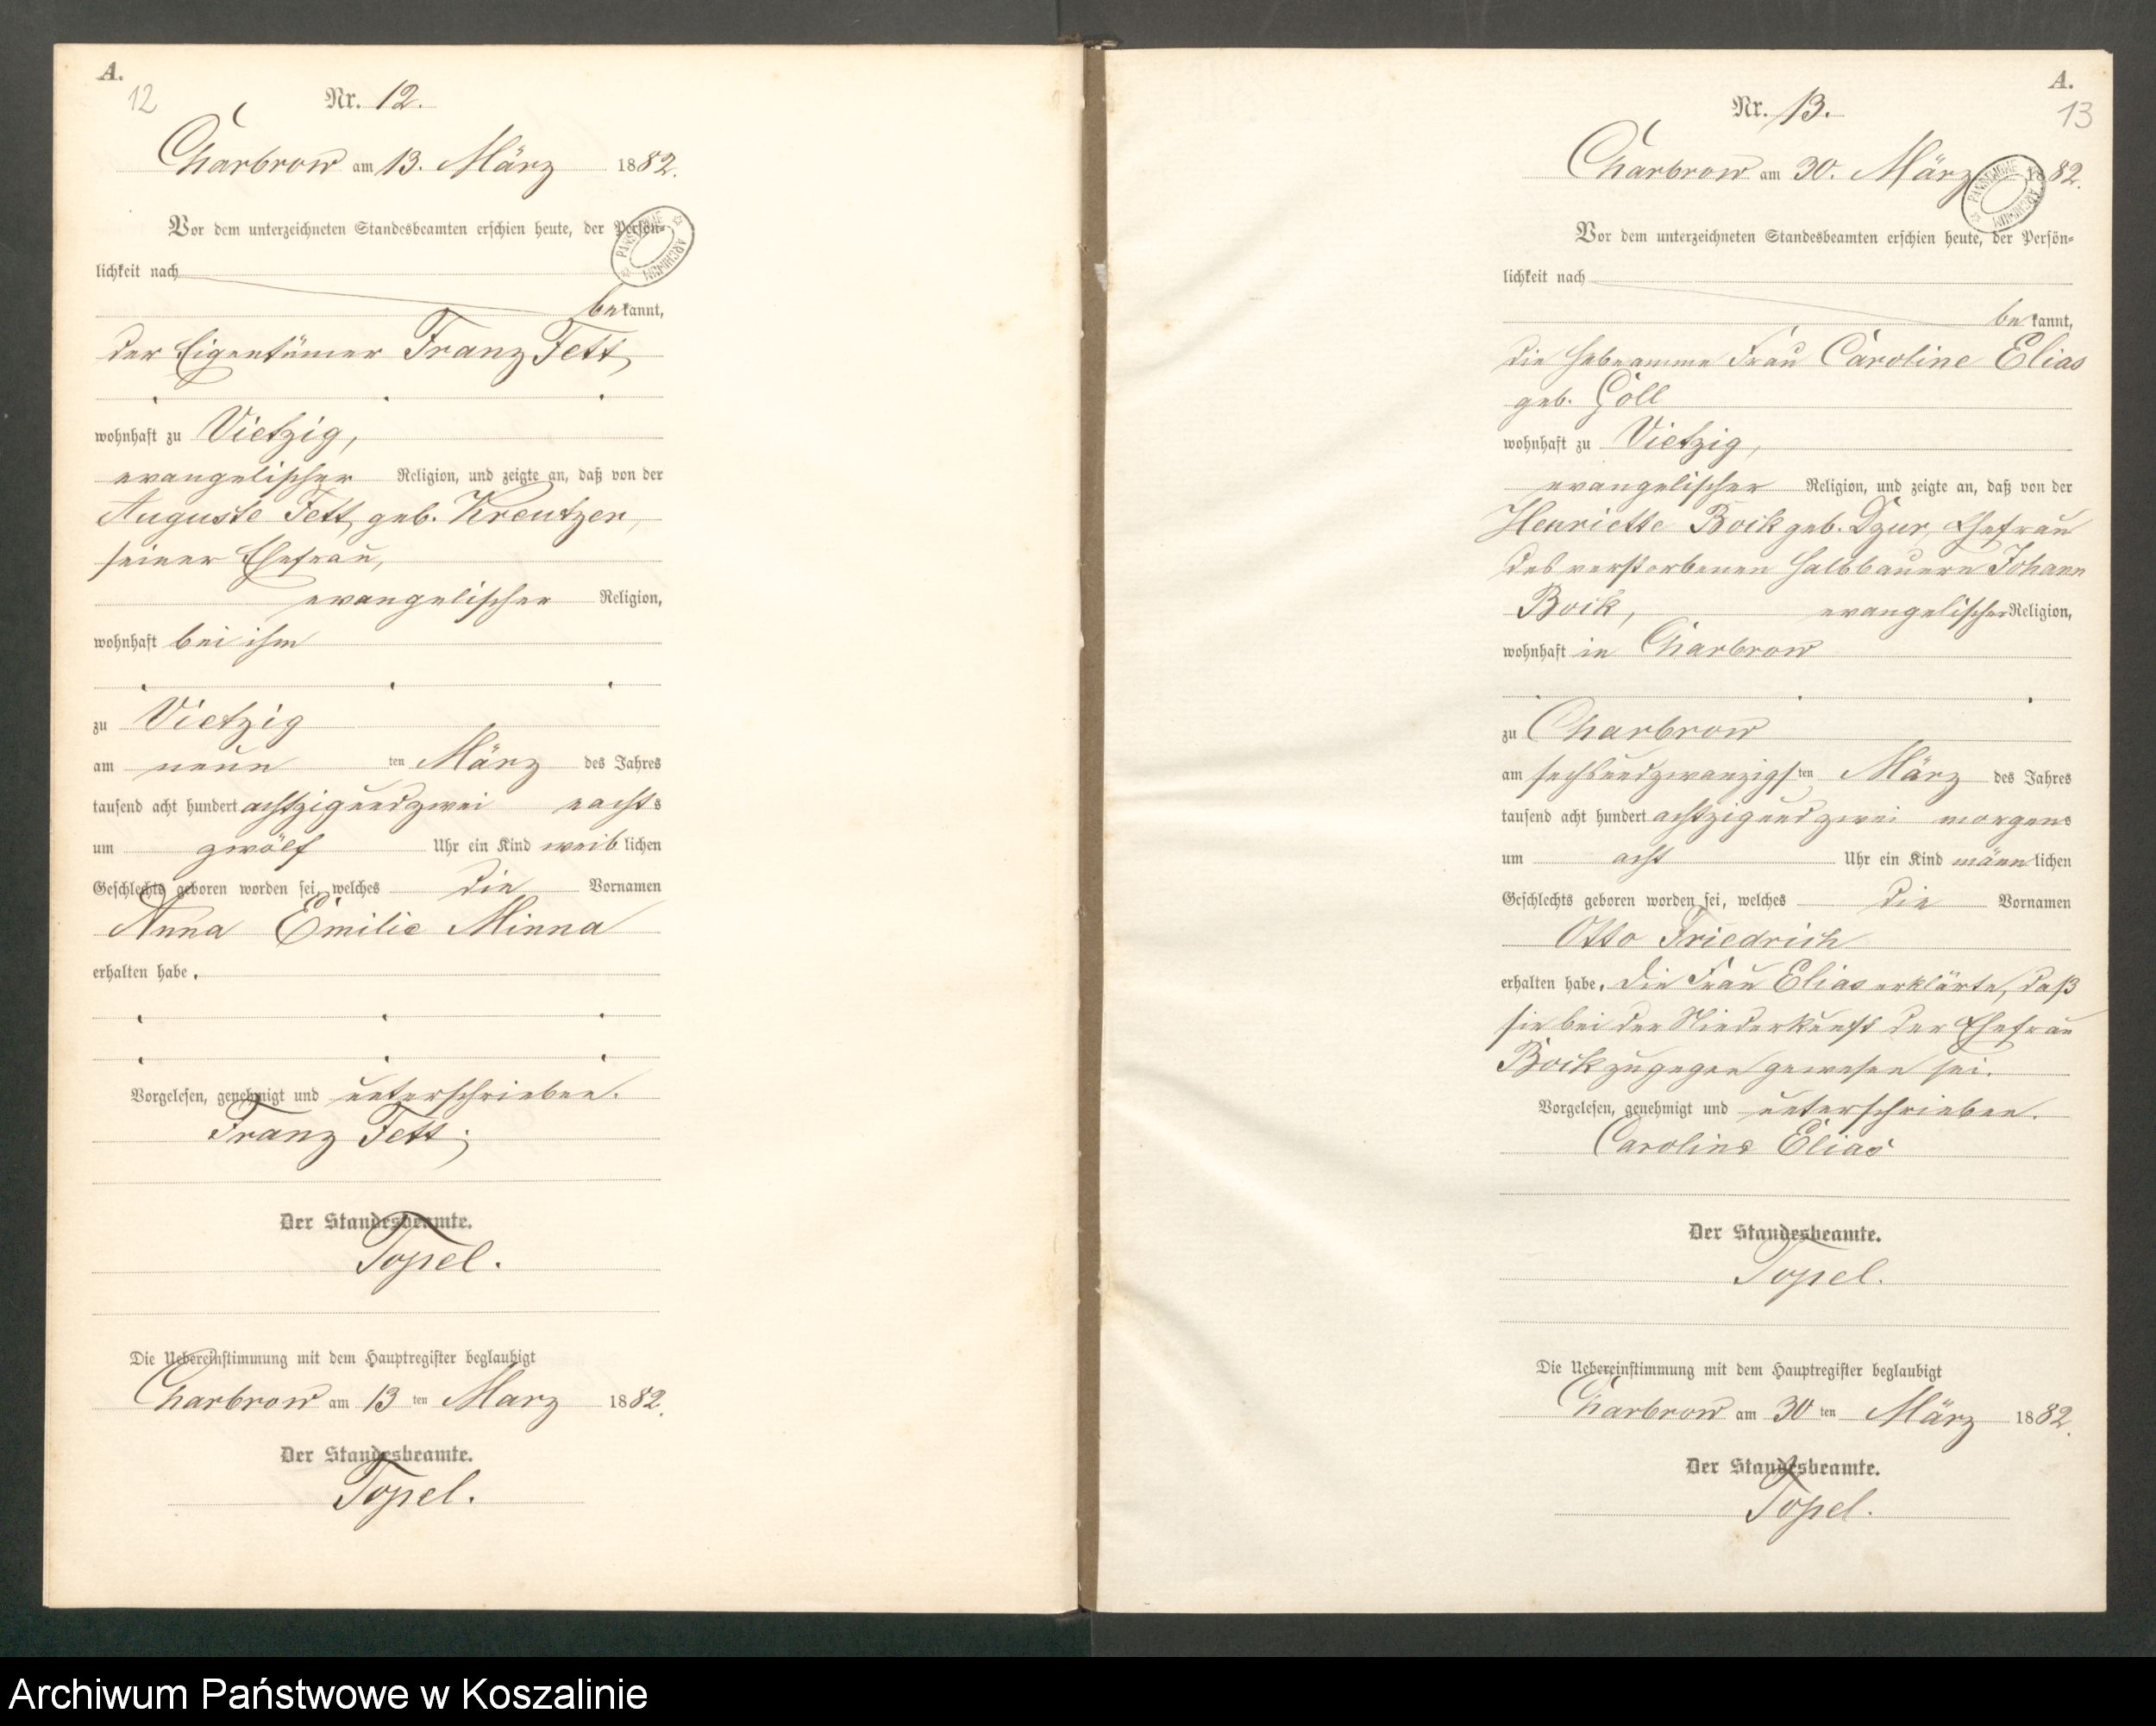 A.
12
Nr. 12.
Charbrow am 13. März 1882.
Vor dem unterzeichneten Standesbeamten erschien heute, der Persön-
lichkeit nach
bekannt,
der Eigentümer Franz Fett,
wohnhaft zu Vietzig,
evangelischer Religion, und zeigte an, daß von der
Auguste Fett, geb. Kreutzer,
seiner Ehefrau,
evangelischer Religion,
wohnhaft bei ihm
zu Vietzig
am neun ten März des Jahres
tausend acht hundert achtzig und zwei nachts
um zwölf Uhr ein Kind weiblichen
Geschlechts geboren worden sei, welches die Vornamen
Anna Emilie Minna
erhalten habe.
Vorgelesen, genehmigt und unterschrieben.
Franz Fett.
Der Standesbeamte.
Topel.
Die Uebereinstimmung mit dem Hauptregister beglaubigt
Charbrow am 13 ten Marz 1882.
Der Standesbeamte.
Topel.
A.
13
Nr. 13.
Charbrow am 30. März 1882.
Vor dem unterzeichneten Standesbeamten erschien heute, der Persön-
lichkeit nach
bekannt,
die Hebeamme Frau Caroline Elias
geb. Göll
wohnhaft zu Vietzig,
evangelischer Religion, und zeigte an, daß von der
Henriette Boik geb. Ehefrau
des verstorbenen Halbbauern Johann
Boik, evangelischer Religion,
wohnhaft in Charbrow
zu Charbrow
am sechsundzwanzigsten März des Jahres
tausend acht hundert achtzig und zwei morgens
um acht Uhr ein Kind männlichen
Geschlechts geboren worden sei, welches die Vornamen
Otto Friedrich
erhalten habe. Die Frau Elias erklärte, daß
sie bei der Niederkunft der Ehefrau
Boik zugegen gewesen sei.
Vorgelesen, genehmigt und unterschrieben.
Caroline Elias
Der Standesbeamte.
Topel.
Die Uebereinstimmung mit dem Hauptregister beglaubigt
Charbrow am 30 ten März 1882.
Der Standesbeamte.
Topel.
Archiwum Państwowe w Koszalinie